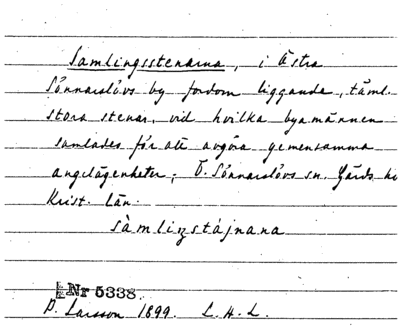 Samlingsstenarna, i Östra
Sönnarslövs by fordom liggande, täml.
stora stenar, vid hvilka byamännen
samlades för att avgöra gemensamma
angelägenheter; Ö. Sönnarslövs sn. Gärds h
Krist. län.
sàmliŋstájnana
Nr 5338.
P. Larsson 1899. L.H.L.